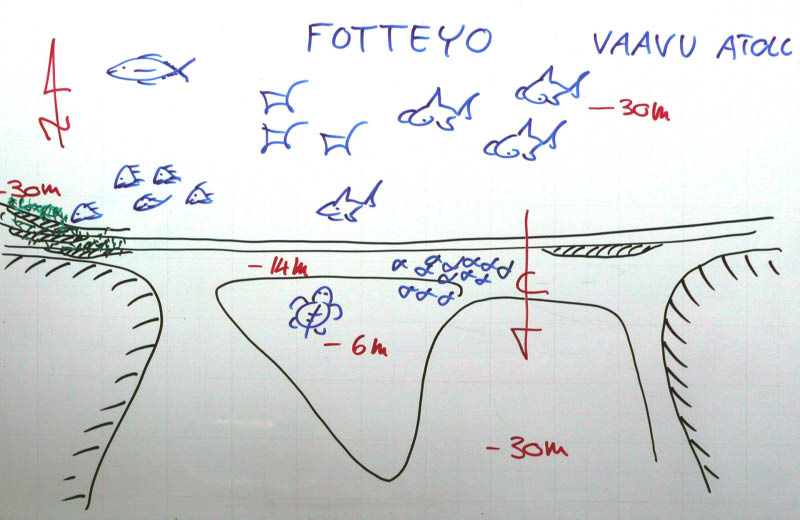 FOTTEYO
VAAVU ATOLL
N
-30m
-30m
-14m
C
-6m
-30m